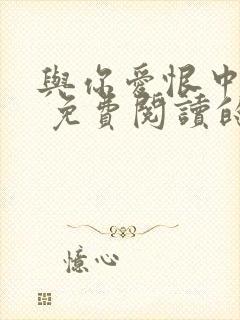 與你愛恨中
免費閱讀的
憶心